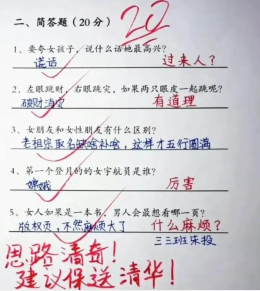 二、简答题（20分）
20
1、要夸女孩子，说什么话她最高兴？
谎话
过来人？
2、左眼跳财，右眼跳灾，如果两只眼皮一起跳呢？
破财消灾
有道理
3、女朋友和女性朋友有什么区别？
老祖宗取名缺啥补啥，这样才五行圆满
4、第一个登月的的女宇航员是谁？
嫦娥
厉害
5、女人如果是一本书，男人会最想看哪一页？
版权页，不然麻烦大了
什么麻烦？
三三班采投
思路清奇！
建议保送清华！